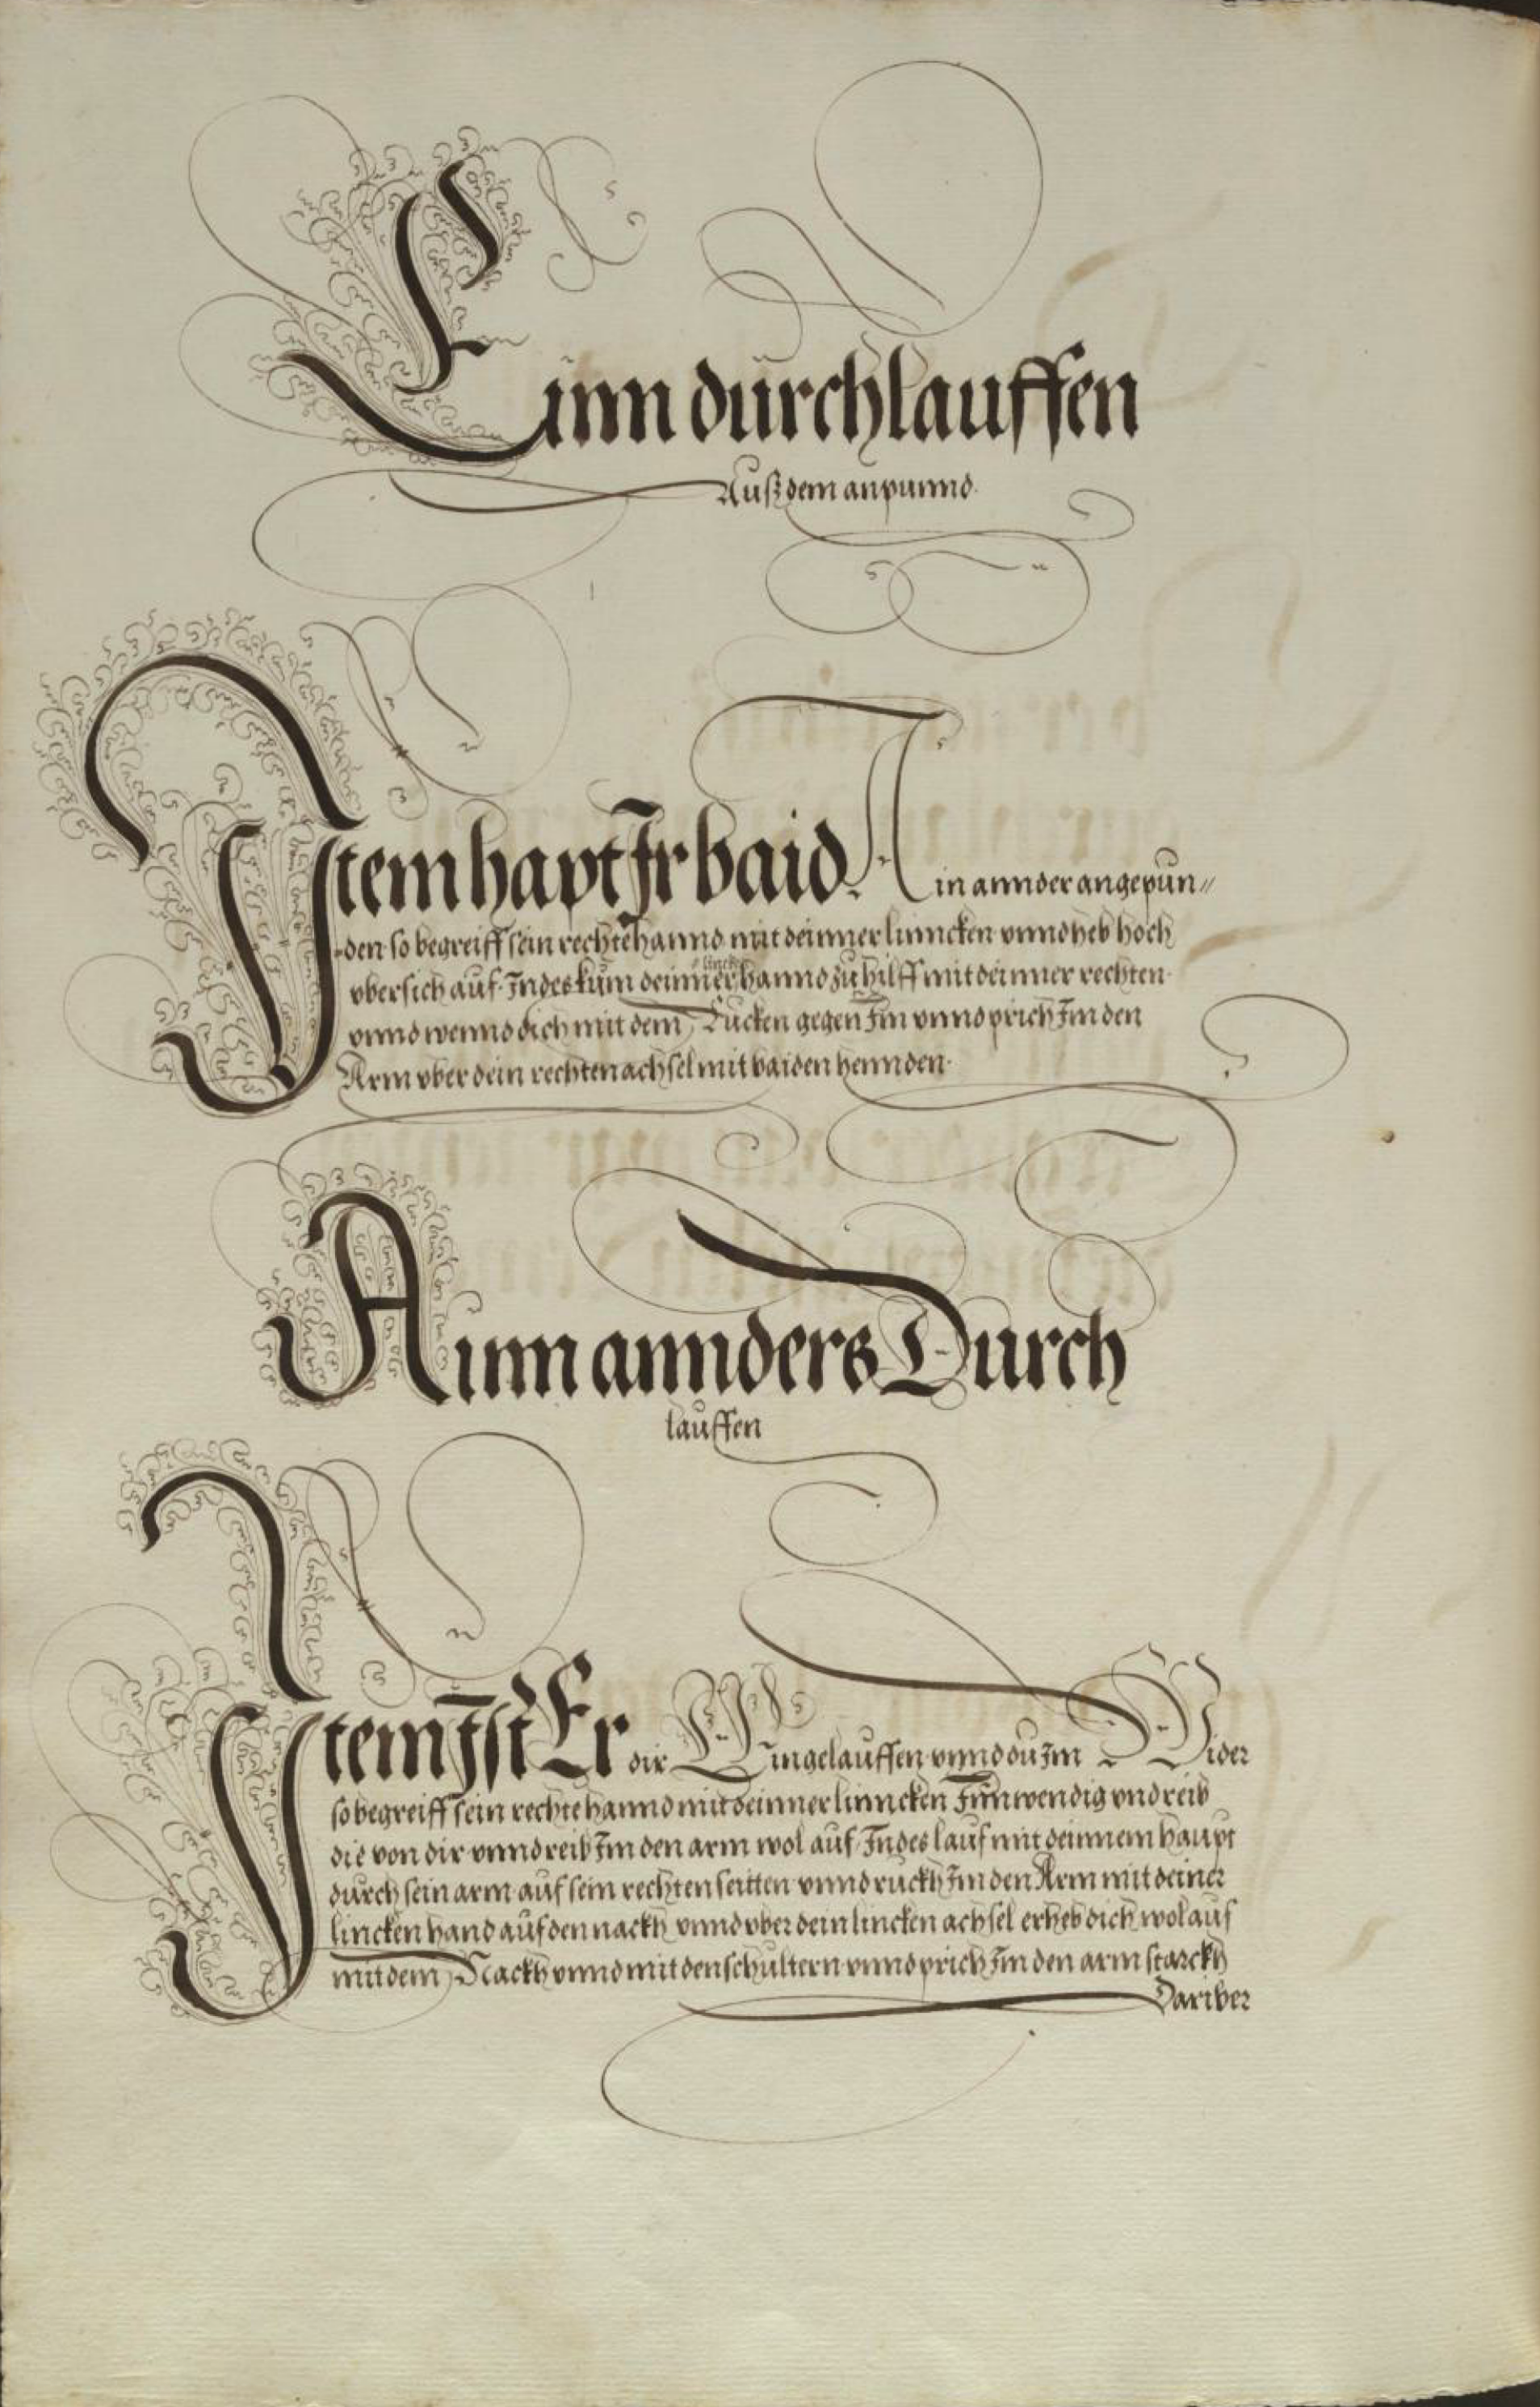 Einn durchlauffen
Auß dem anpunnd.
Item hapt Ir baid. Ain annder angepun〃
den so begreiff sein rechte hannd mit deinner linncken vnnd heb hoch
vbersich auf. Indes kum deinner hannd zu hilff mit deinner rechten
linck
vnnd wennd dich mit dem Rucken gegen Im vnnd prich Im den
Arm vber dein rechten achsel mit baiden hennden.
Ainn annders Durch
lauffen
Item Ist Er dir Eingelauffen vnnd du Im Wider
so begreiff sein rechte hannd mit deinner linncken Innwendig vnd reib
die von dir vnnd reib Im den arm wol auf Indes lauf mit deinnem haupt
durch sein arm auf sein rechten seitten vnnd ruckh Im den Arm mit deiner
lincken hand auf den nackh vnnd vber dein lincken achsel erheb dich wol auf
mit dem Nackh vnnd mit den schultern vnnd prich Im den arm starckh
Dariber